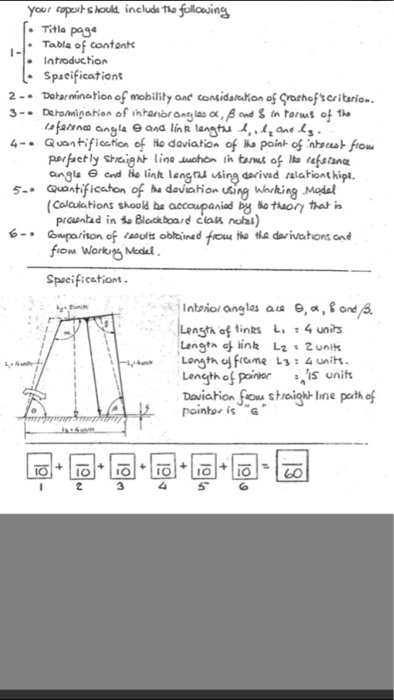 your report should include the following
• Title page
• Table of contents
1-
• Introduction
• Specifications
2 - • Determination of mobility and consideration of Grashof's criterion.
3 - • Determination of interior angles α, β and δ in terms of the
reference angle θ and link lengths l₁, l₂ and l₃.
4 - • Quantification of the deviation of the point of interest from
perfectly straight line motion in terms of the reference
angle θ and the link lengths using derived relationships.
5 - • Quantification of the deviation using Working Model
(Calculations should be accompanied by the theory that is
presented in the Blackboard class notes)
6 - • Comparison of results obtained from the the derivations and
from Working Model.
Specifications.
L₂ = 2 units
L₁ = 4 units
L₁ = 4 units
L₃ = 4 units
Interior angles are θ, α, δ and β.
Length of links L₁ = 4 units
Length of link L₂ = 2 units
Length of frame L₃ = 4 units.
Length of pointer = √15 units
Deviation from straight line path of
pointer is "ϵ"
10 + 10 + 10 + 10 + 10 + 10 = 60
1 2 3 4 5 6